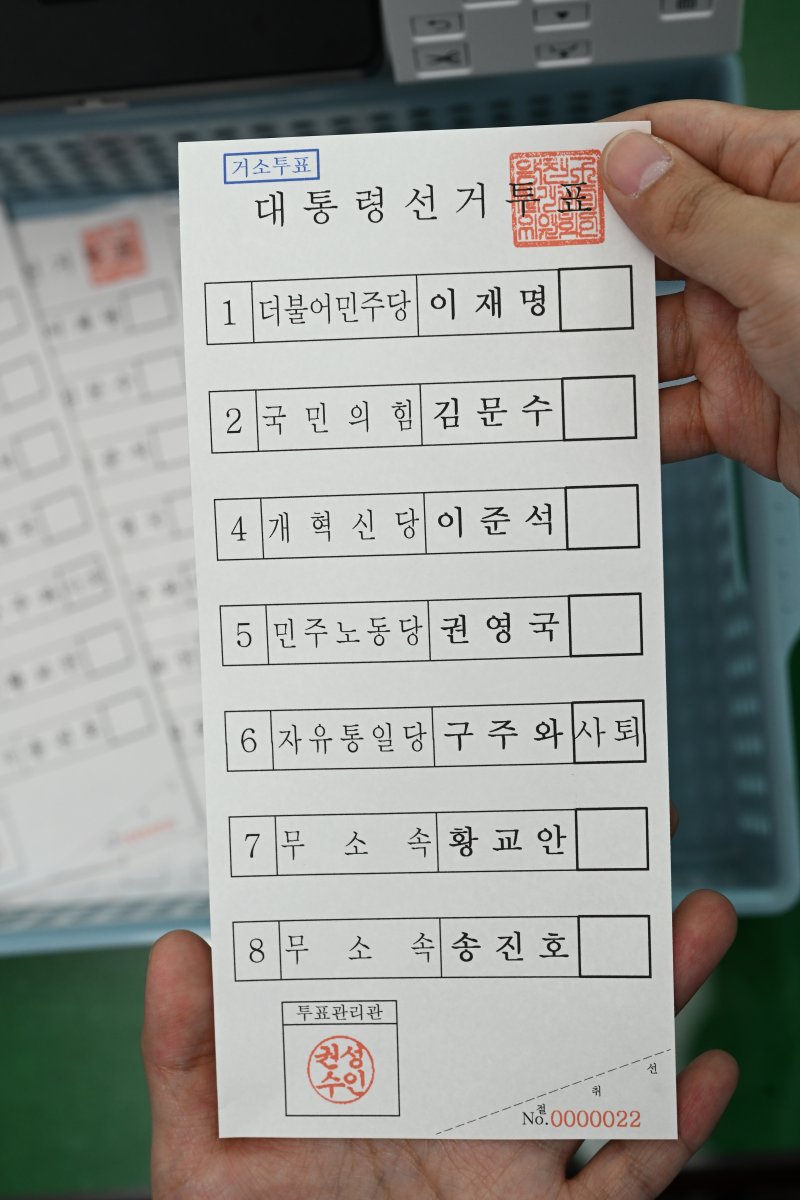 거소투표
대통령선거투표
1 더불어민주당 이재명
2 국민의힘 김문수
4 개혁신당 이준석
5 민주노동당 권영국
6 자유통일당 구주와 사퇴
7 무소속 황교안
8 무소속 송진호
투표관리관
권성
수인
절취선
No.0000022